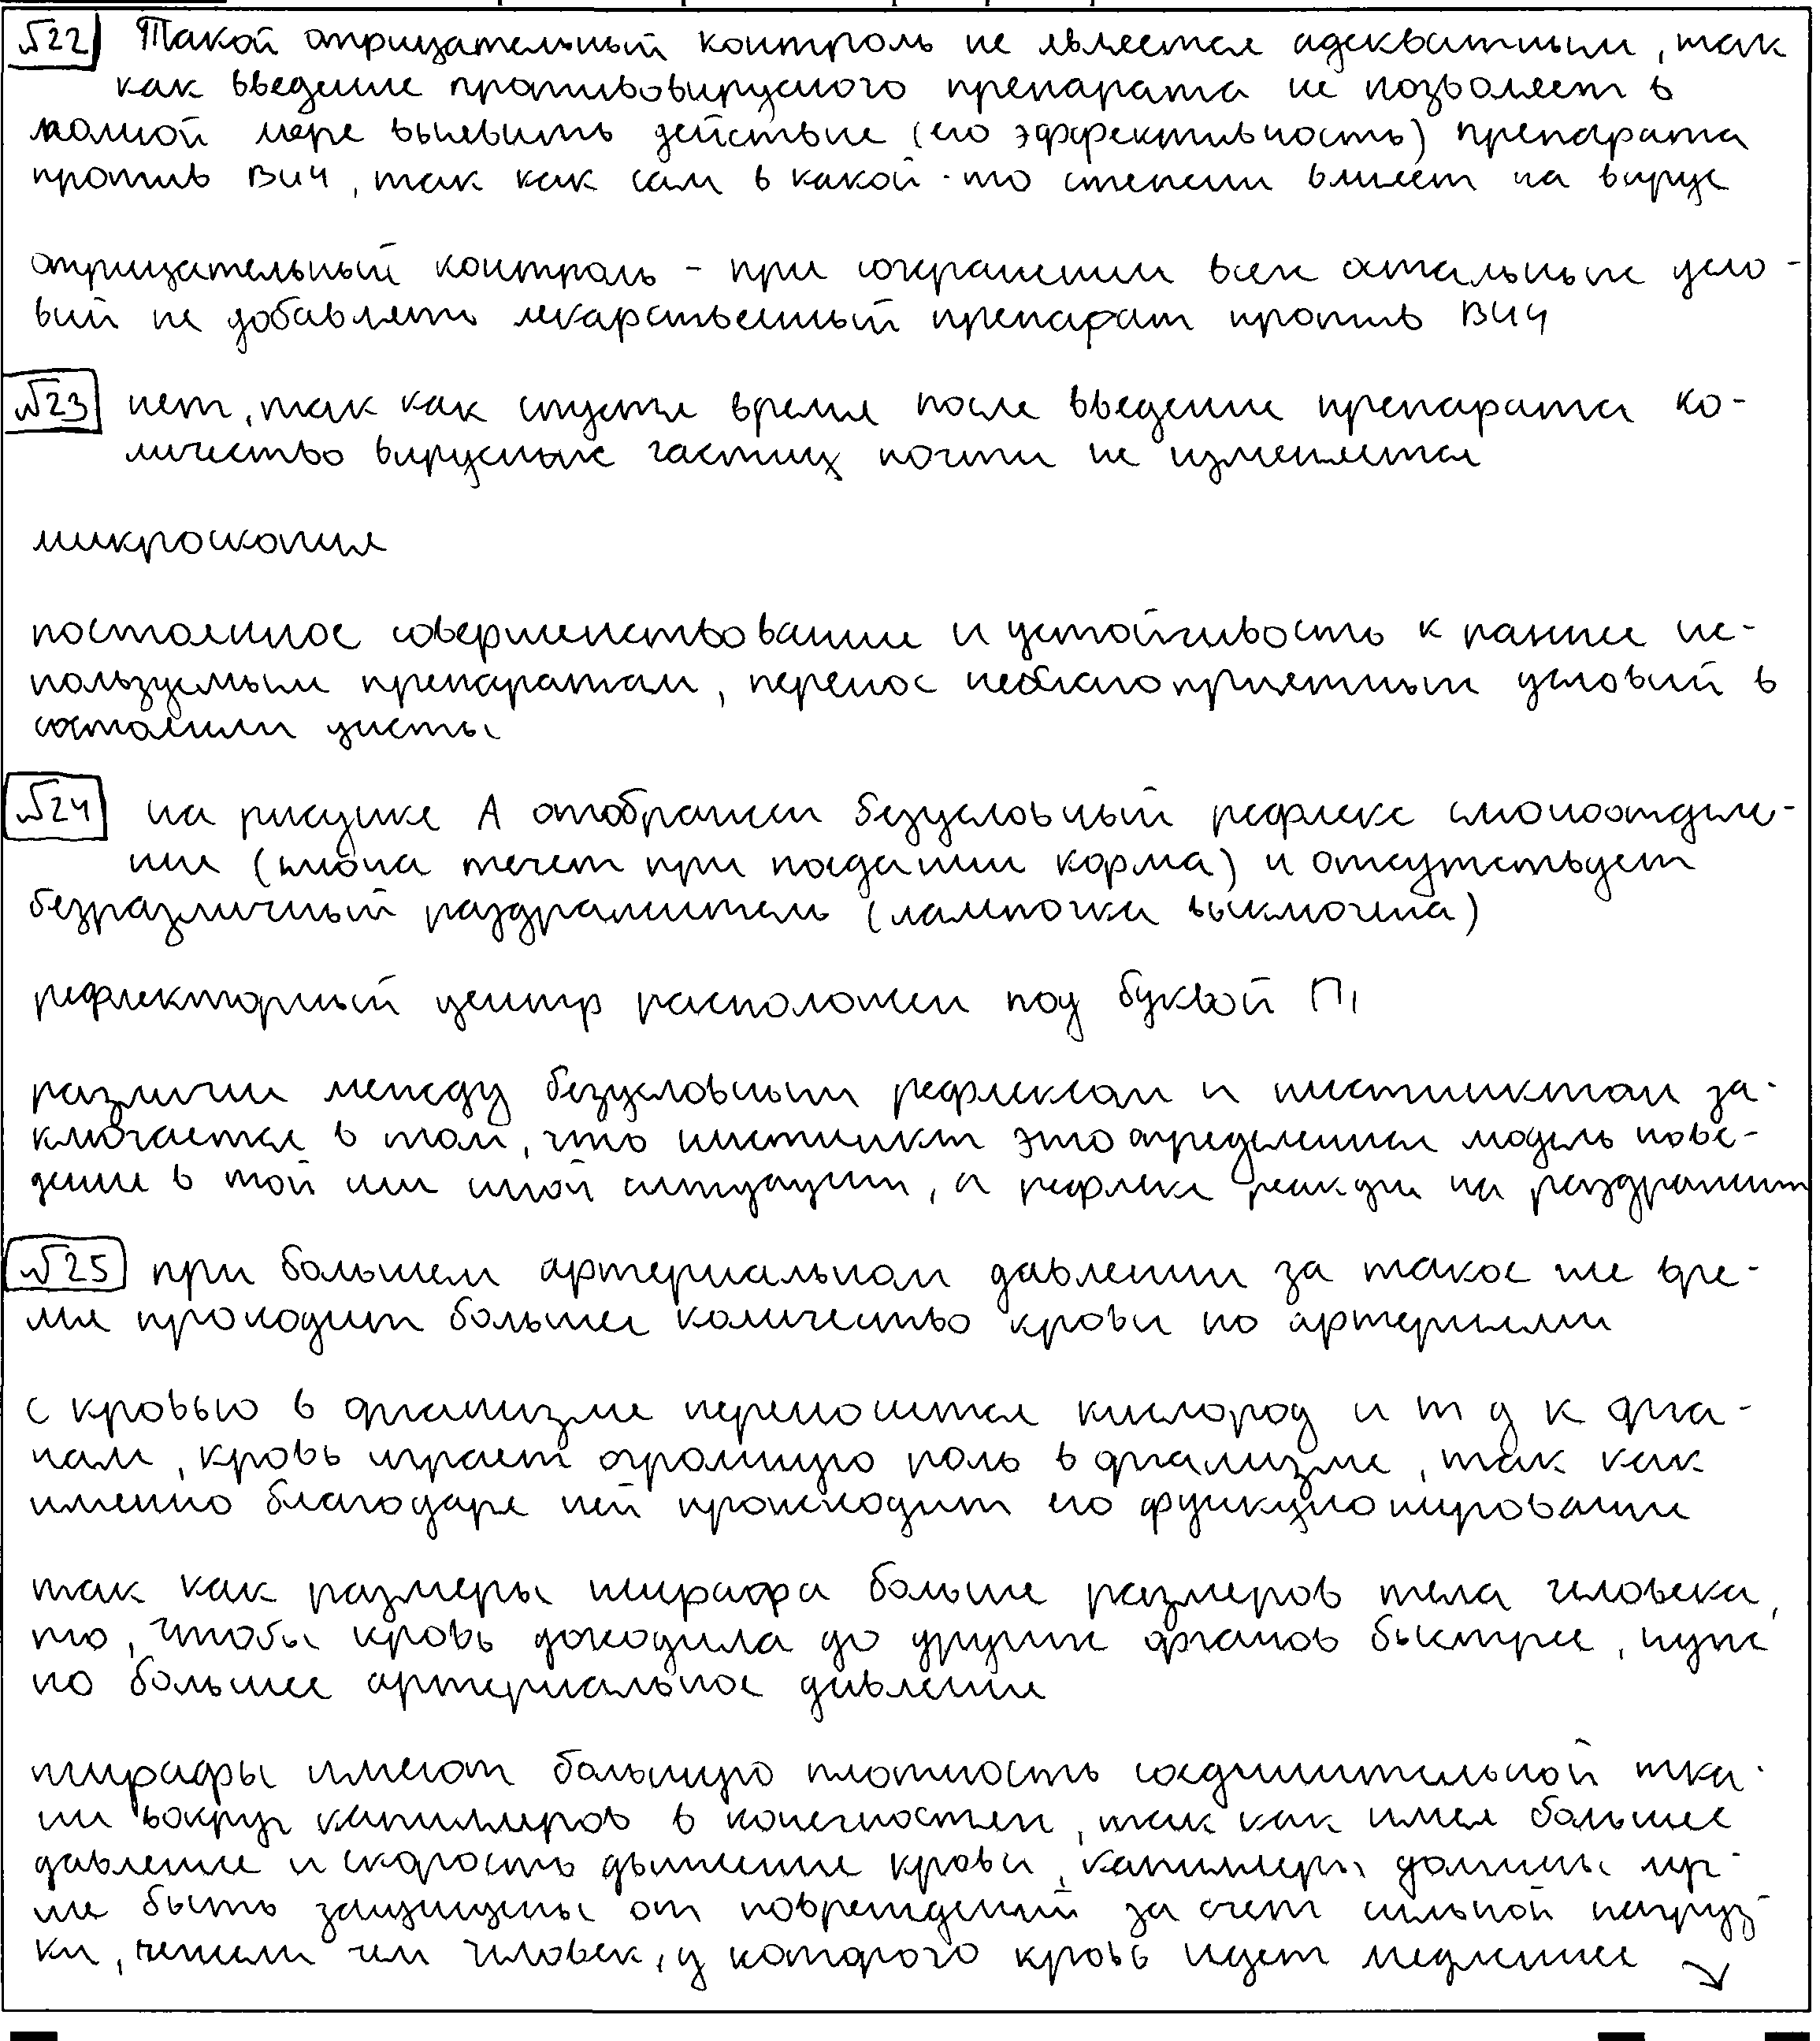 №22 Такой отрицательный контроль не является адекватным, так
как введение противовирусного препарата не позволяет в
полной мере выявить действие (его эффективность) препарата
против ВИЧ, так как сам в какой-то степени влияет на вирус
отрицательный контроль - при сохранении всех остальных усло-
вий не добавлять лекарственный препарат против ВИЧ
№23 нет, так как спустя время после введение препарата ко-
личество вирусных частиц почти не изменяется
микроскопия
постоянное совершенствование и устойчивость к ранее ис-
пользуемым препаратам, перенос неблагоприятных условий в
состоянии цисты
№24 на рисунке А отображен безусловный рефлекс слюноотделе-
ние (слюна течет при поедании корма) и отсутствует
безразличный раздражитель (лампочка выключена)
рефлекторный центр расположен под буквой П1
различие между безусловным рефлексом и инстинктом за-
ключается в том, что инстинкт это определенная модель пове-
дение в той или иной ситуации, а рефлекс реакция на раздражит
№25 при большем артериальном давлении за такое же вре-
мя проходит большее количество крови по артериями
с кровью в организме переносится кислород и т д к орга-
нам, кровь играет огромную роль в организме, так как
именно благодаря ней происходит его функционирование
так как размеры жирафа больше размеров тела человека,
то, чтобы кровь доходила до других органов быстрее, нуж
но большее артериальное давление
жирафы имеют большую плотность соединительной тка-
ни вокруг капилляров в конечностях, так как имея большее
давление и скорость движение крови, капилляры должны луч-
ше быть защищены от повреждений за счет сильной нагруз-
ки, нежели чем человек, у которого кровь идет медленнее